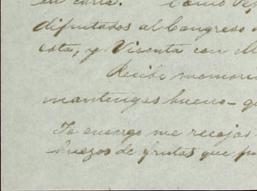 en carta. Como
diputados al Congreso
esta, y Vicenta con
Recibe
mantengas bueno
Te encargo me recojas
huezos de frutas que